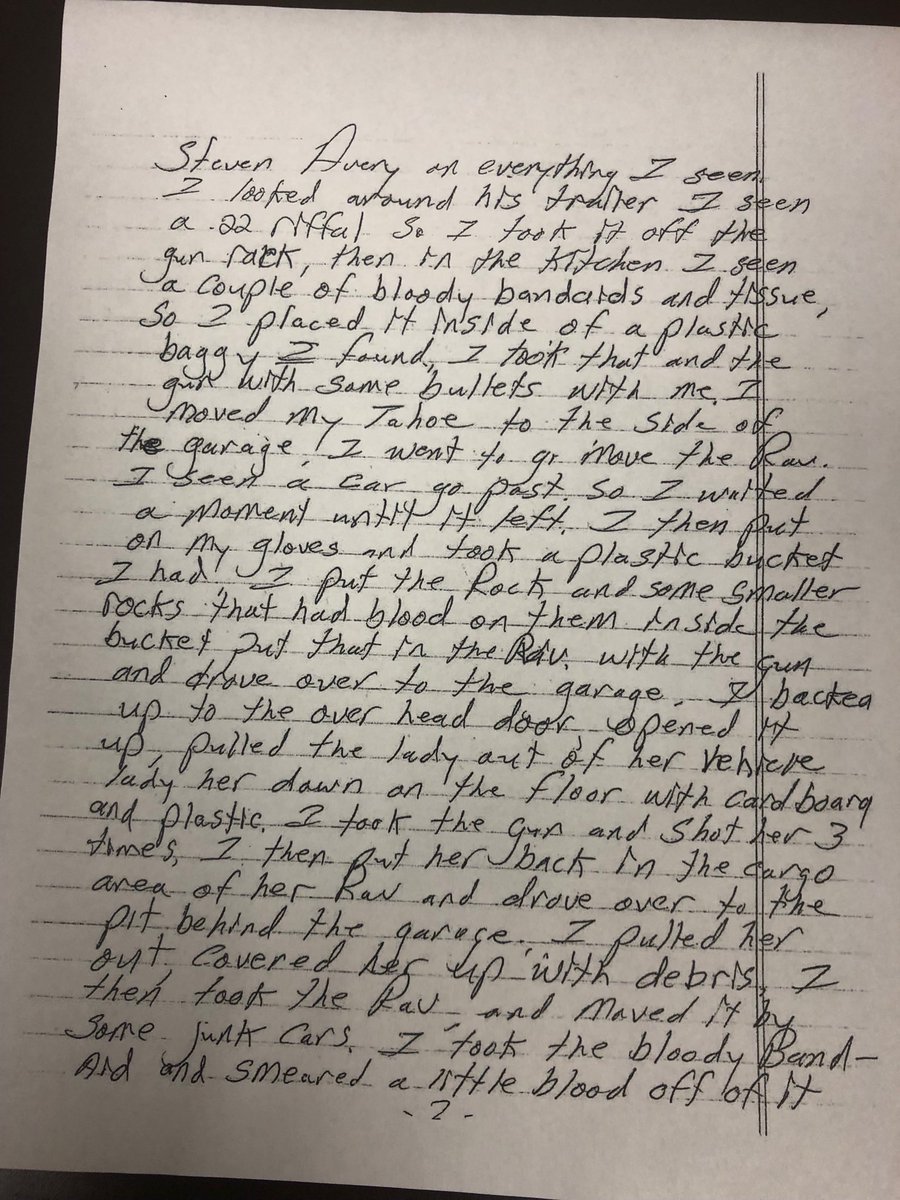 Steven Avery on everything I seen.
I looked around his trailer I seen
a .22 riffal So I took it off the
gun rack, then in the kitchen I seen
a couple of bloody bandaids and tissue,
So I placed it inside of a plastic
baggy I found, I took that and the
gun with some bullets with me. I
moved my Tahoe to the side of
the garage! I went to go move the Rav.
I seen a car go past. So I waited
a moment until it left. I then put
on my gloves and took a plastic bucket
I had. I put the Rock and some smaller
rocks that had blood on them inside the
bucket put that in the Rav. with the gun
and drove over to the garage. I backed
up to the over head door, opened it
up, pulled the lady out of her vehicle
lady her down on the floor with cardboard
and plastic. I took the gun and Shot her 3
times, I then put her back in the cargo
area of her Rav and drove over to the
pit behind the garage. I pulled her
out, covered her up with debris. I
then took the Rav and moved it by
some junk cars. I took the bloody Band-
Aid and smeared a little blood off of it
- 2 -